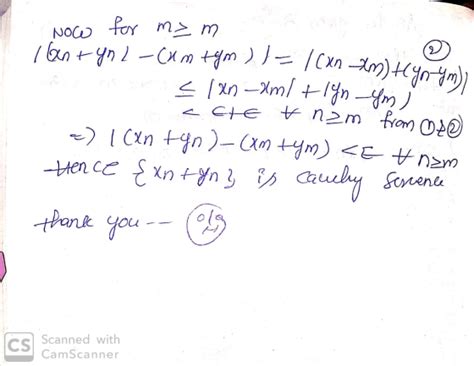 ②
Now for m ≥ m
|(xn + yn) - (xm + ym)| = |(xn - xm) + (yn - ym)|
≤ |xn - xm| + |yn - ym|
< ε + ε ∀ n ≥ m from ① & ②
⇒ |(xn + yn) - (xm + ym) < ε ∀ n ≥ m
Hence {xn + yn} is cauchy
thank you --
CS Scanned with
CamScanner